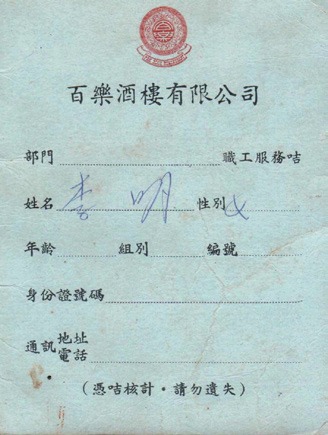 百樂酒樓有限公司
部門 職工服務咭
姓名 李明 性別 女
年齡 組別 編號
身份證號碼
通訊地址電話
(憑咭核計・請勿遺失)